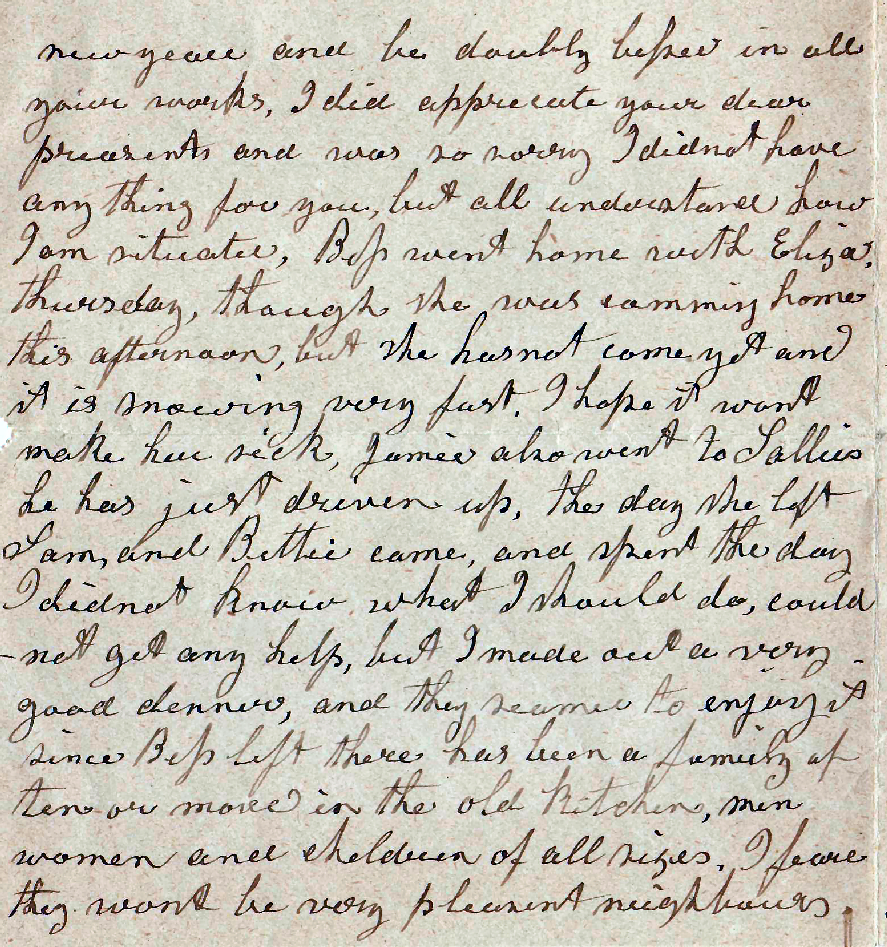 new year and be doubly blessed in all
your works, I did apprecate your dear
preasents and was so sorry I did not have
any thing for you, but all understand how
I am situated, Bess went home with Eliza,
thursday, though she was comming home
this afternoon, but she has not come yet and
it is snowing very fast. I hope it wont
make her sick, Jamie also went to Sallies
he has just driven up, the day she left
Sam, and Bettie came, and spent the day
I did not know what I should do, could
-not get any help, but I made out a very
good denner, and they seamed to enjoy it
since Bess left there has been a family of
ten or more in the old kitchen, men
women and children of all sizes, I feare
they wont be very pleasent neighbours.